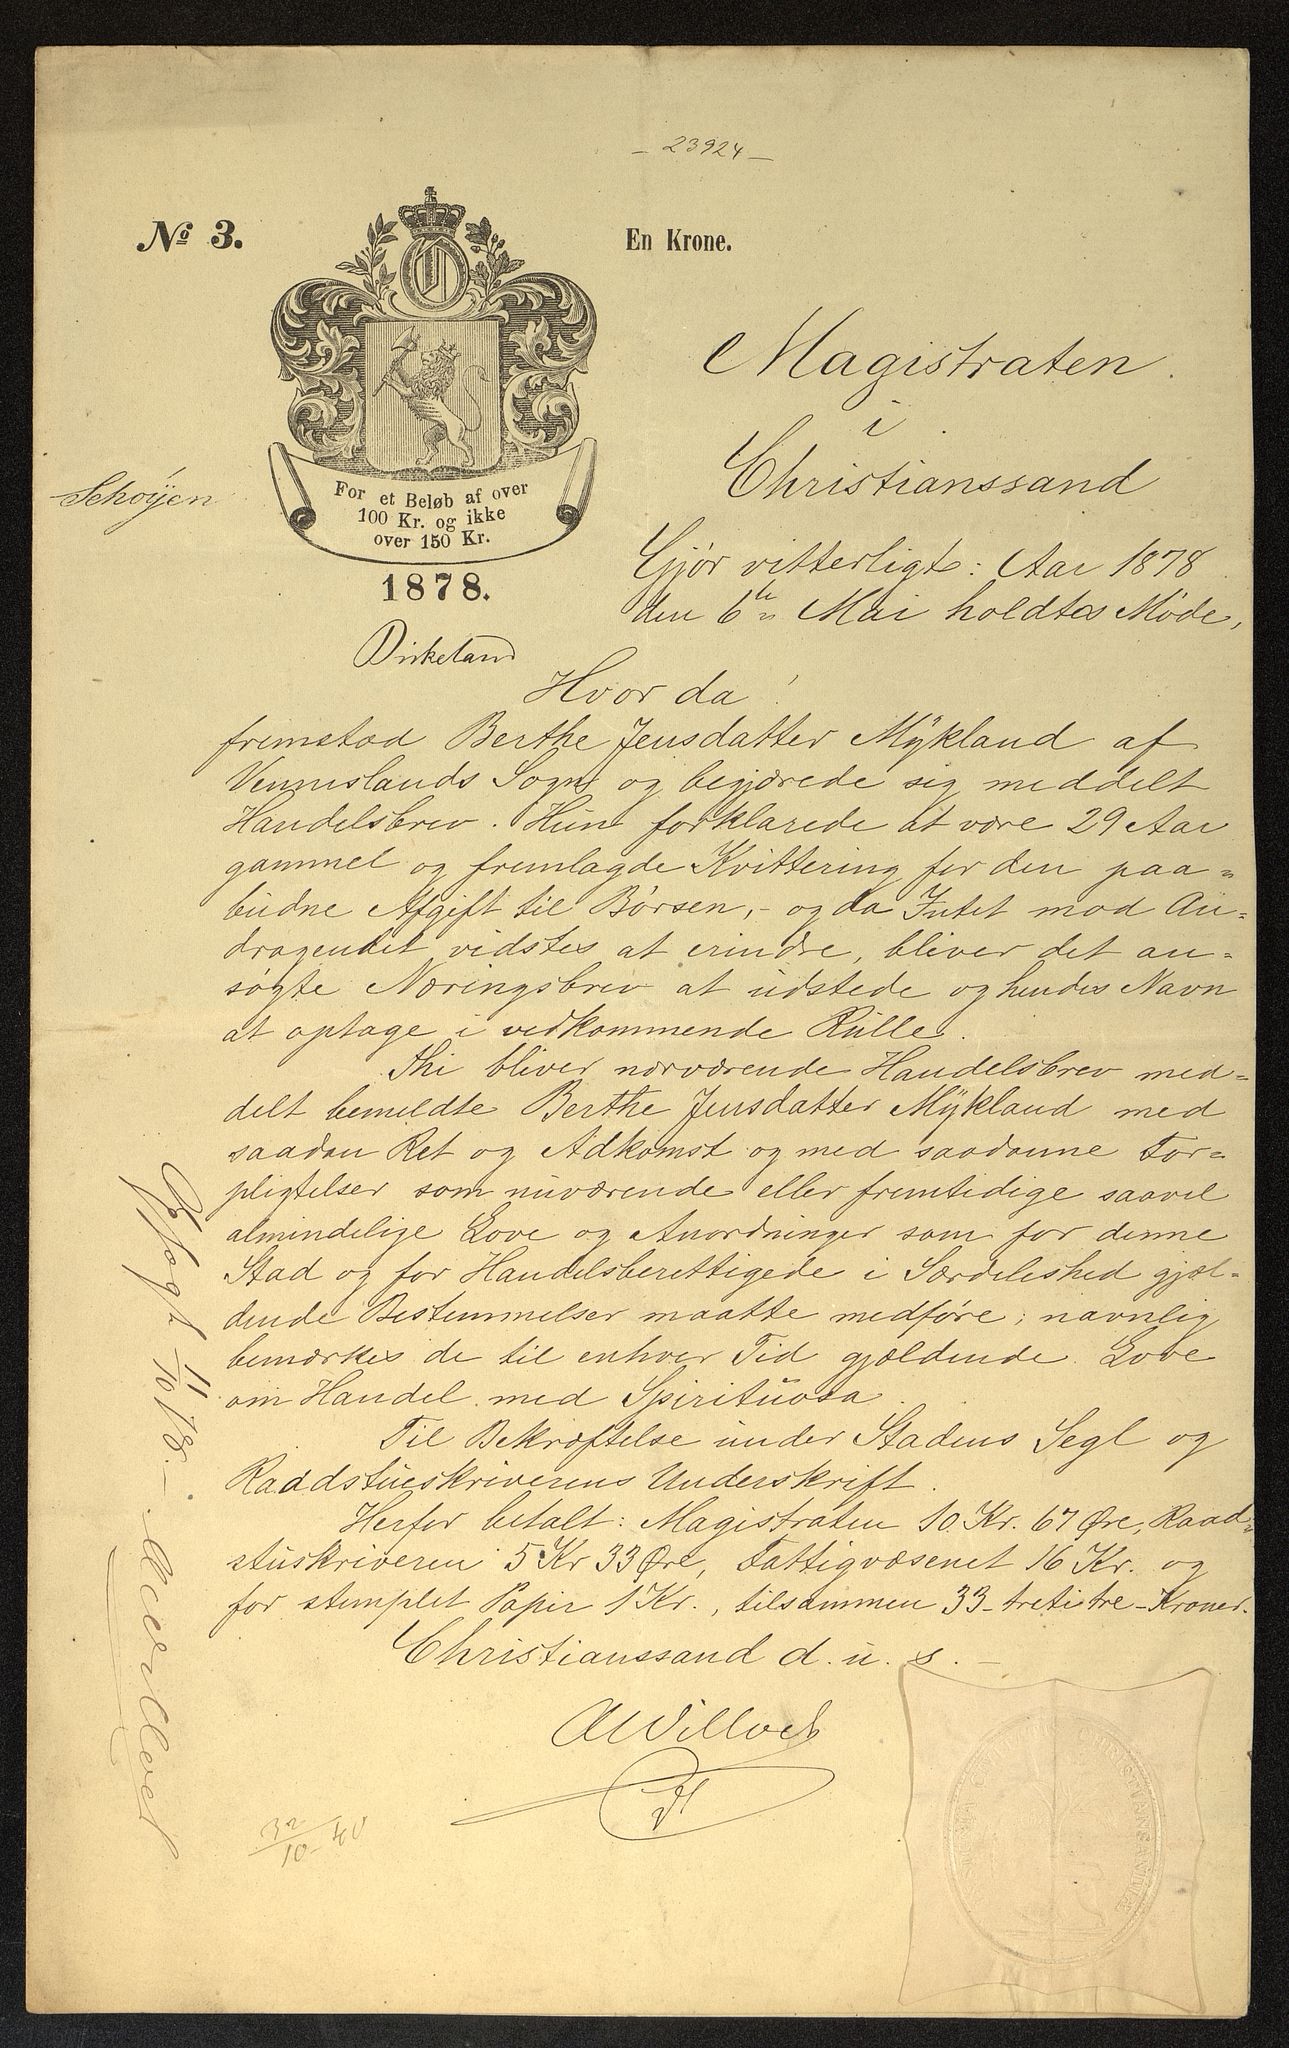 - 23924 -
No 3.
En Krone.
For et Beløb af over
100 Kr. og ikke
over 150 Kr.
1878.
Schøÿen
Birkeland
Magistraten
i
Christianssand
Gjør vitterligt: Aar 1878
den 6te Mai holdtes Møde,
Hvor da!
fremstod Berthe Jensdatter Mÿkland af
Vennislands Sogn og begjærede sig meddelt
Handelsbrev. Hun forklarede at være 29 Aar
gammel og fremlagde Kvittering for den paa-
budne Afgift til Børsen, - og da Intet mod An-
dragendet vidstes at erindre, bliver det an-
søgte Næringsbrev at udstede og hendes Navn
at optage i vedkommende Rulle.
Thi bliver nærværende Handelsbrev med-
delt bemeldte Berthe Jensdatter Mÿkland med
saadan Ret og Adkomst og med saadanne For-
pligtelser som nuværende eller fremtidige saavel
almindelige Love og Anordninger som for denne
Stad og for Handelsberettigede i Særdeleshed gjæl-
dende Bestemmelser maatte medføre; navnlig
bemærkes de til enhver Tid gjældende Love
om Handel med Spirituosa.
Til Bekræftelse under Stadens Segl og
Raadstueskriverens Underskrift.
Herfor betalt: Magistraten 10 Kr. 67 Øre, Raad-
stuskriveren 5 Kr 33 Øre, Fattigvæsenet 16 Kr. og
for stemplet Papir 1 Kr., tilsammen 33 - treti tre - Kroner.
Christianssand d. u. s. -
AWilloch
Opsagt 11/10 78. -
32/10-40